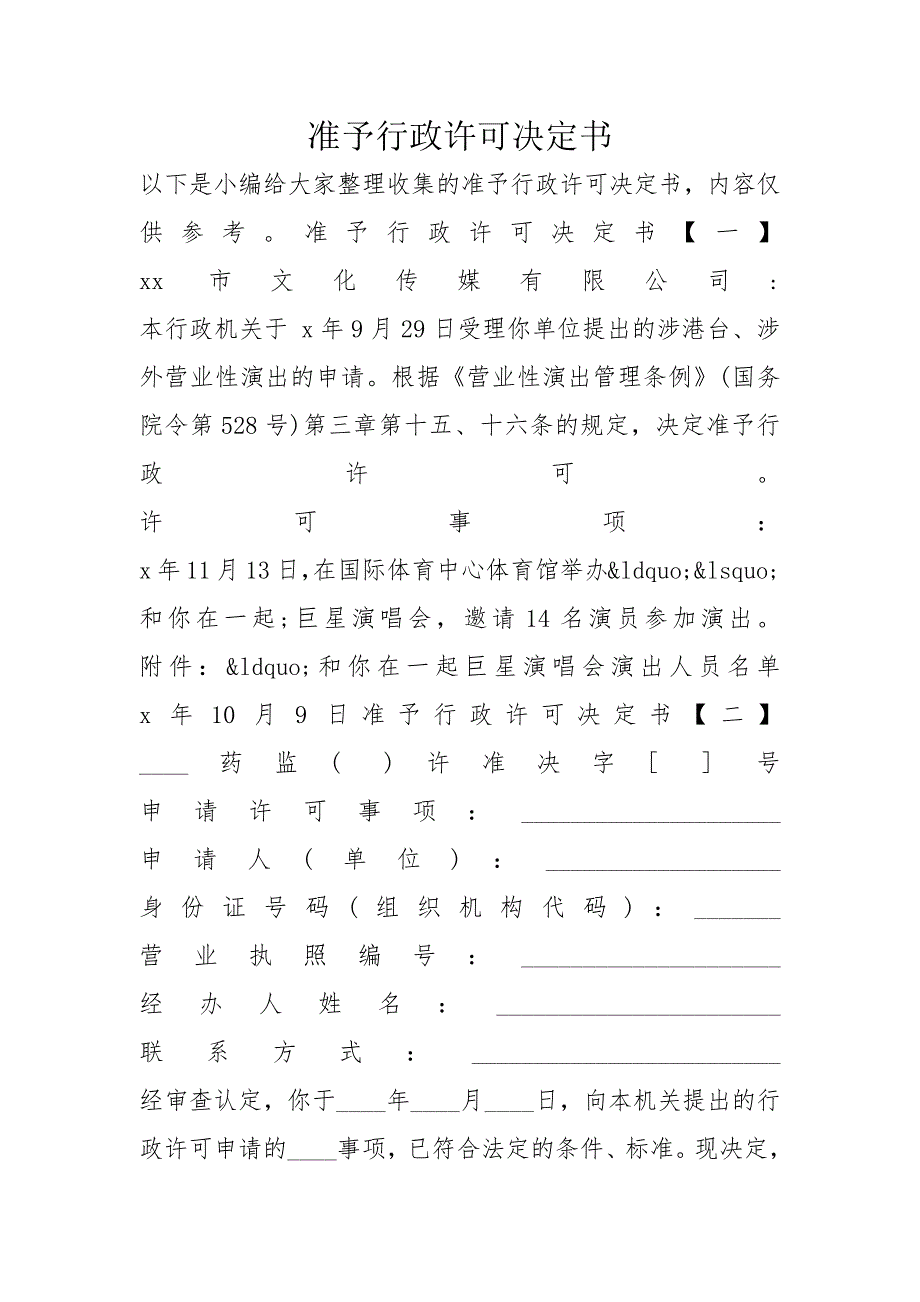 准予行政许可决定书
以下是小编给大家整理收集的准予行政许可决定书，内容仅
供参考。准予行政许可决定书【一】
xx市文化传媒有限公司:
本行政机关于 x年9月29日受理你单位提出的涉港台、涉
外营业性演出的申请。根据《营业性演出管理条例》(国务
院令第528号)第三章第十五、十六条的规定，决定准予行
政许可。
许可事项:
x年11月13日,在国际体育中心体育馆举办&ldquo;&lsquo;
和你在一起;巨星演唱会，邀请14名演员参加演出。
附件：&ldquo;和你在一起巨星演唱会演出人员名单
x年10月9日准予行政许可决定书【二】
____药监( )许准决字[ ]号
申请许可事项：_____________________
申请人(单位)：___________________
身份证号码(组织机构代码)：_______
营业执照编号：_____________________
经办人姓名：_______________________
联系方式：_________________________
经审查认定，你于____年____月____日，向本机关提出的行
政许可申请的____事项，已符合法定的条件、标准。现决定，